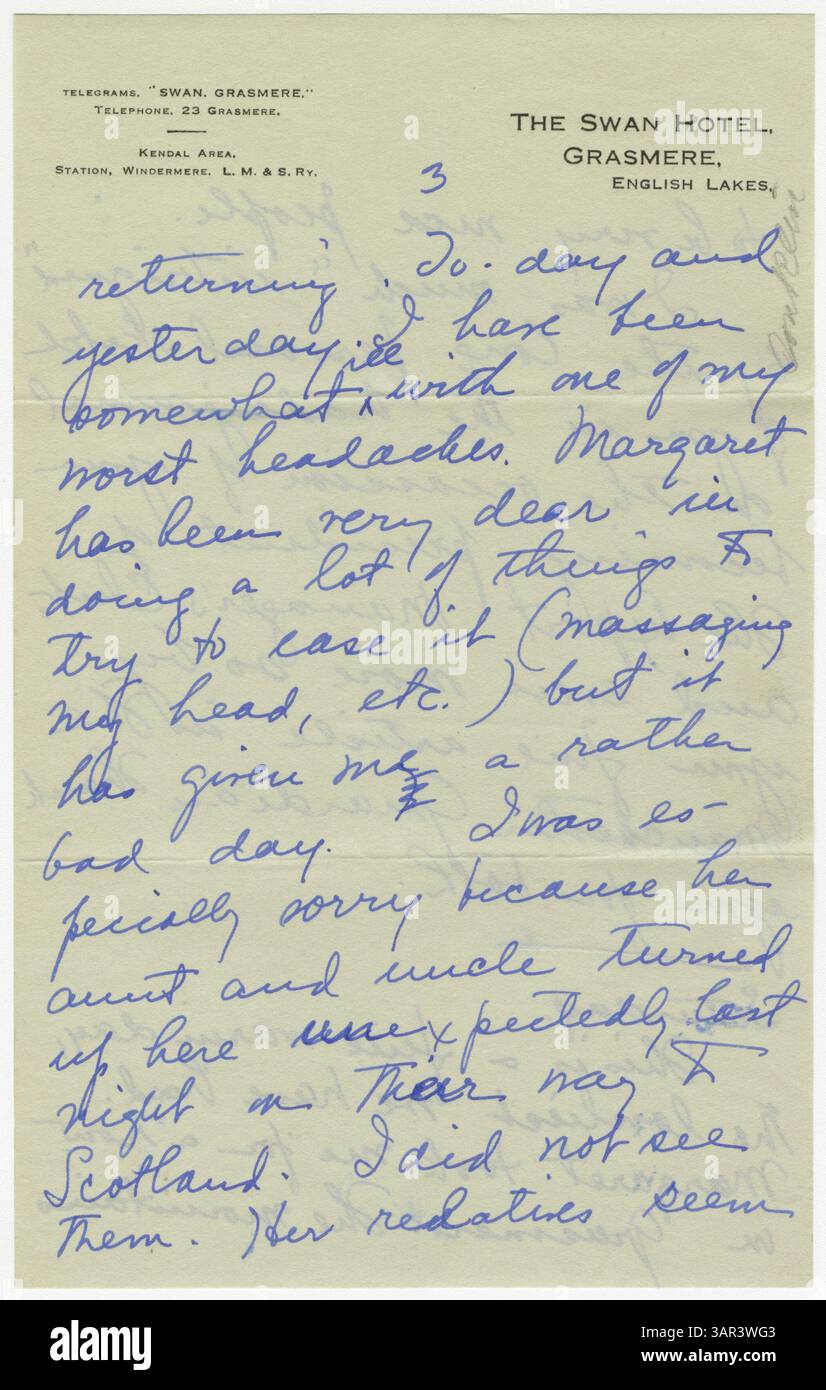 TELEGRAMS, "SWAN, GRASMERE,"
TELEPHONE, 23 GRASMERE.
KENDAL AREA.
STATION, WINDERMERE, L. M. & S. RY.
THE SWAN HOTEL,
GRASMERE,
ENGLISH LAKES,
3
returning. To-day and
yesterday, I have been
somewhat ^ ill with one of my
worst headaches. Margaret
has been very dear in
doing a lot of things to
try to ease it (massaging
my head, etc.) but it
has given me a rather
bad day. I was es-
pecially sorry because her
aunt and uncle turned
up here unexpectedly last
night on their way to
Scotland. I did not see
them. Her relatives seem
alamy
alamy
Image ID: 3AR3WG3
www.alamy.com